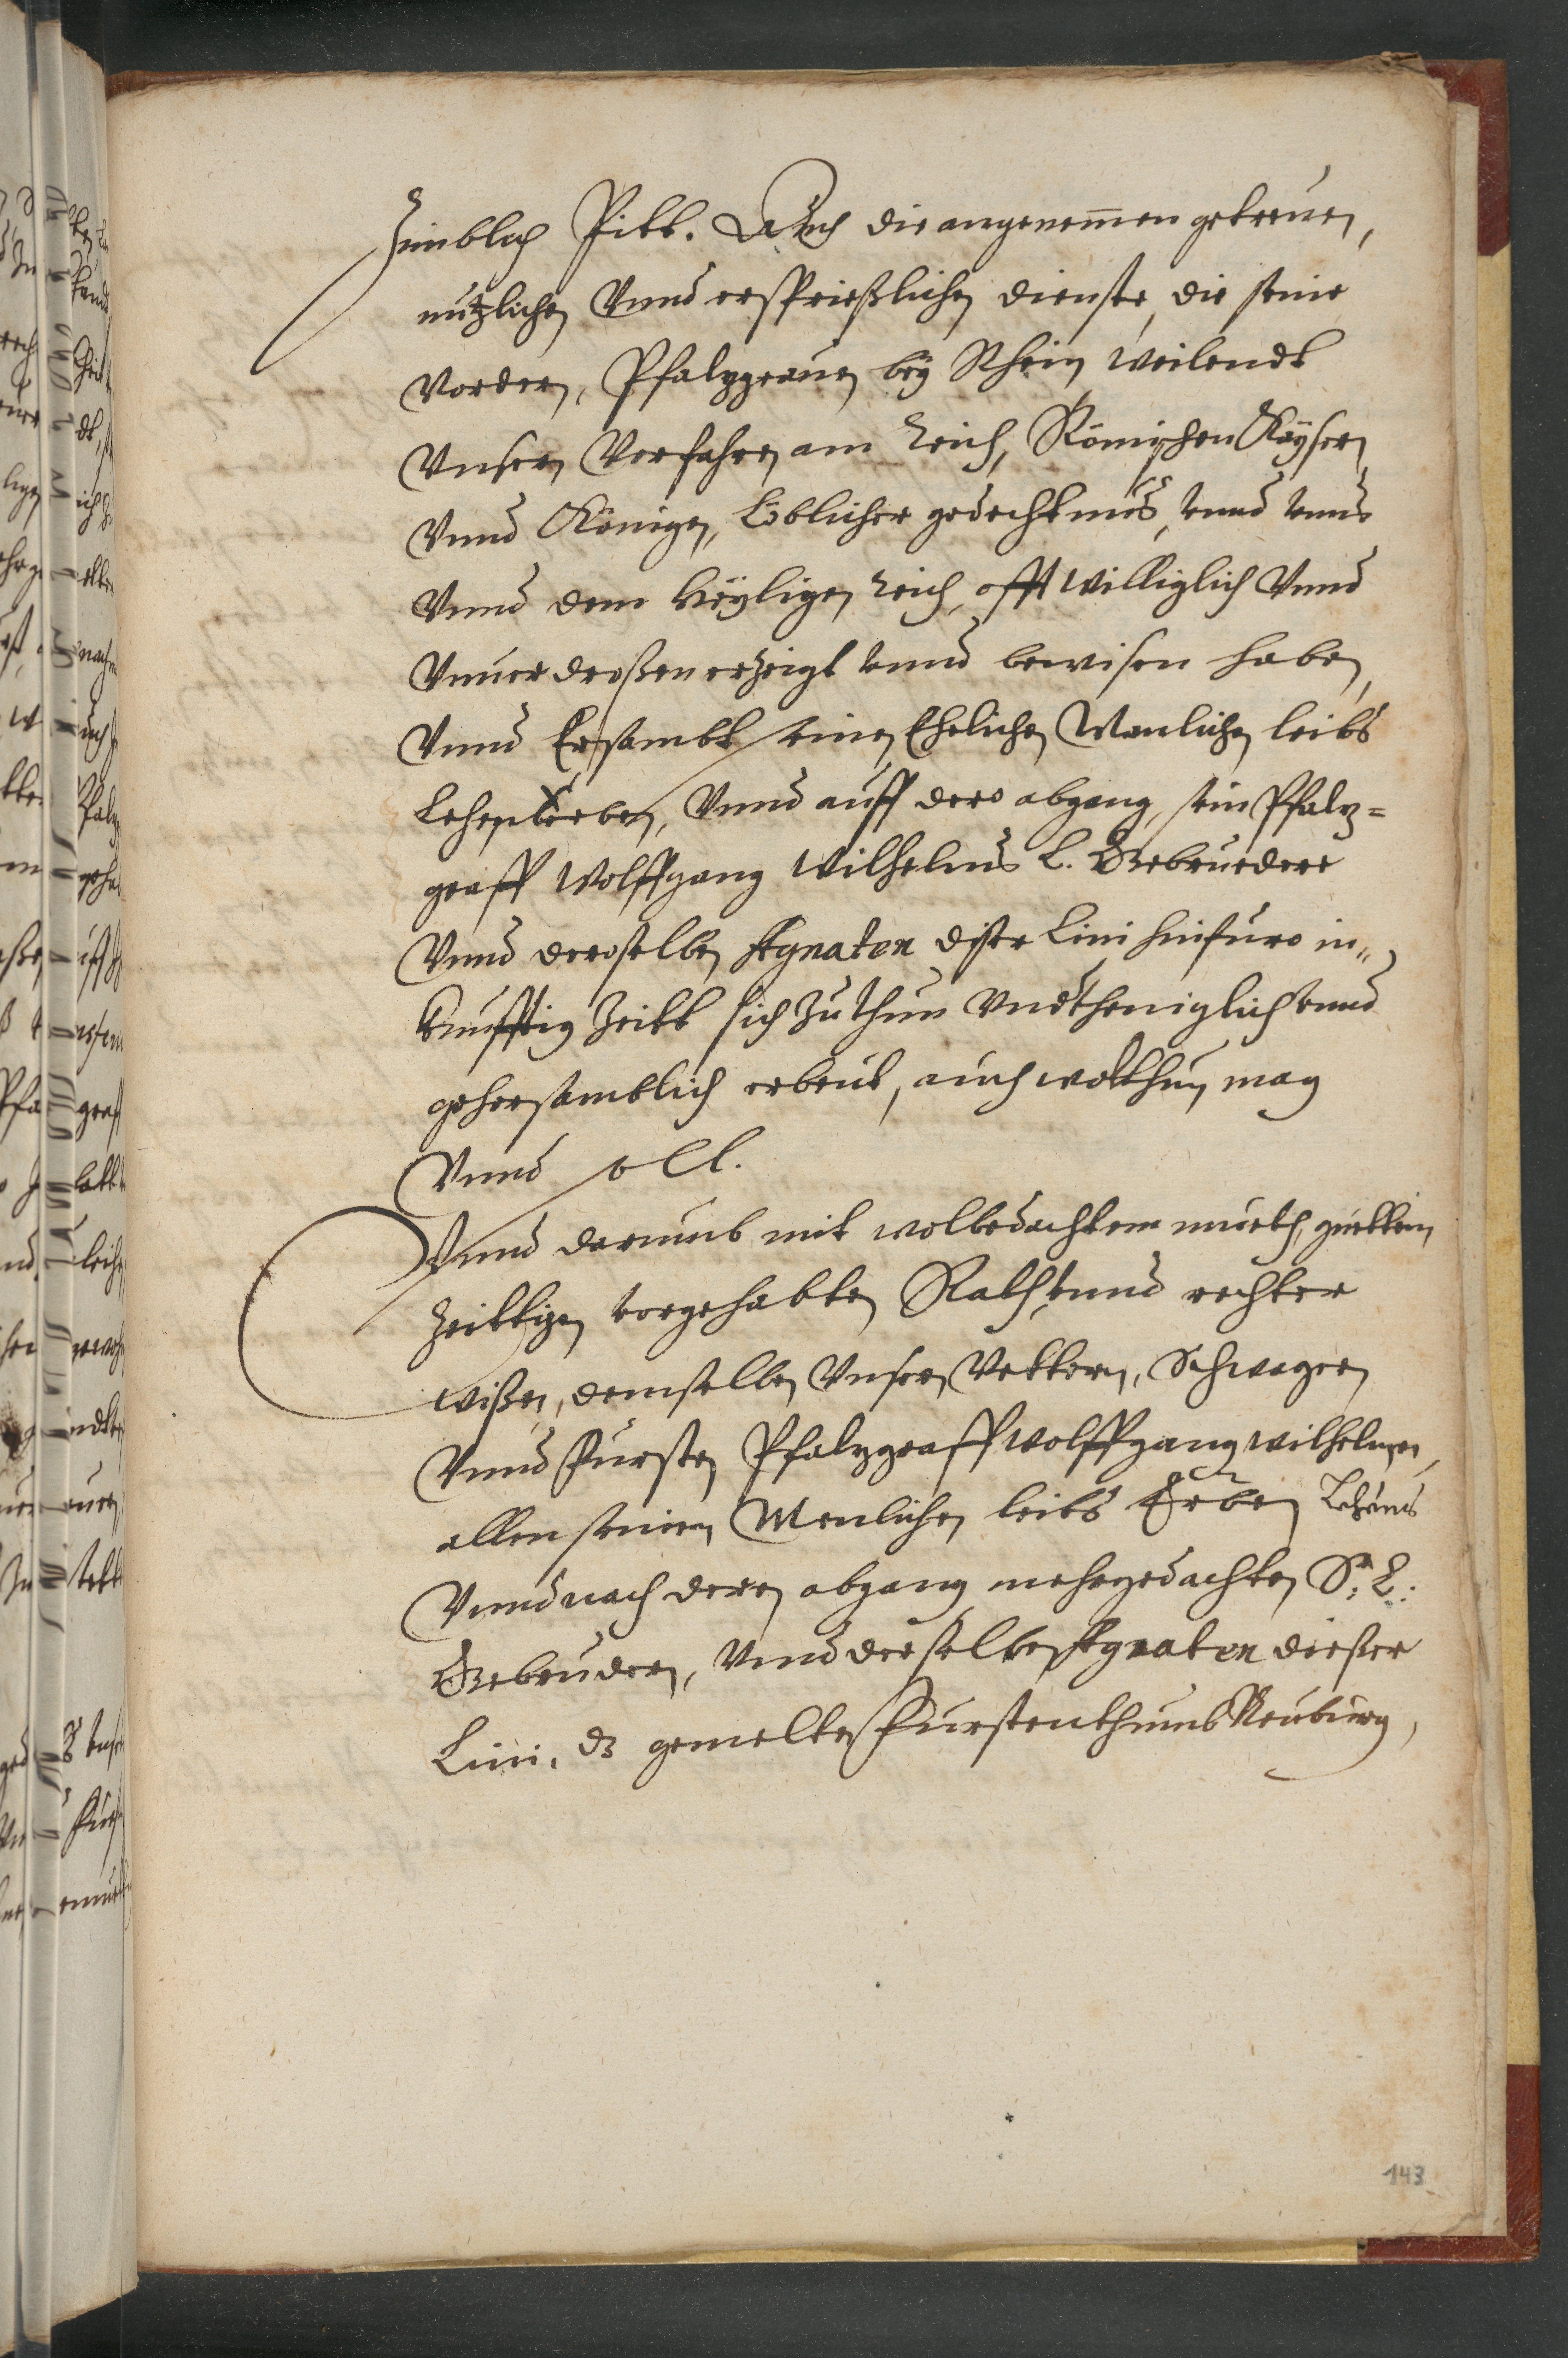 Zimblich Pitt. Auch die angenemen getreuen,
nutzlichen Vnnd ersprießlichen dienste, die seine
Vordern, Pfalzgrauen beÿ Rhein, weilendt
Vnsern Vorfahren am Reich, Römischen Kaÿsern
Vnnd Königen, Löblicher gedechtnus, vnnd vnns
Vnnd dem Heÿligen Reich, offt williglich Vnnd
Vnuerdroßen erzeigt vnnd bewisen haben,
Vnnd Er sambt seinen Ehelichen Manlichen leibs
Lehens Erben, Vnnd auff dero abgang, sein Pfalz=
graff Wolffgang Wilhelms L. Gebruedere
Vnnd deroselben Agnaten diser Lini hinfuro in
kunfftig Zeitt sich Zuthun Vndtheniglich vnnd
gehorsamblich erbeut, auch wol thun mag
Vnnd soll.
Vnnd darumb mit wolbedachtem mueth, guettem
Zeittigen vorgehabten Rath, vnnd rechter
wißen, demselben Vnsern Vettern, Schwagern
Vnnd Fursten Pfalzgraff Wolffgang Wilhelmen,
allen seinen Menlichen leibs Erben Lehens
Vnnd nach deren abgang mehrgedachten Sr. L.
Gebrudern, Vnnd derselben Agnaten dießer
Lini, dz gemelte Furstenthumb Neuburg,
143